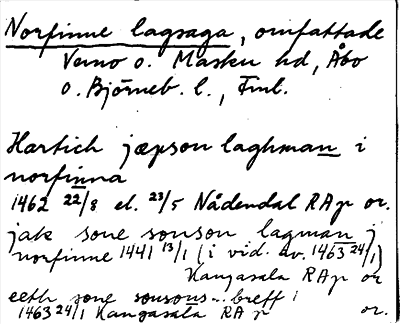 Norfinne lagsaga, omfattade
Vemo o. Masku hd, Åbo
o. Björneb. l., Finl.
Hartich jæpson laghman i
norfinna
1462 22/8 el. 23/5 Nådendal RAp or.
jak sone sonson lagman j
norfinne 1441 13/1 (i vid. av. 1463 24/1)
Kangasala RAp or
eeth sone sonsons... breff
1463 24/1 Kangasala RA p or.